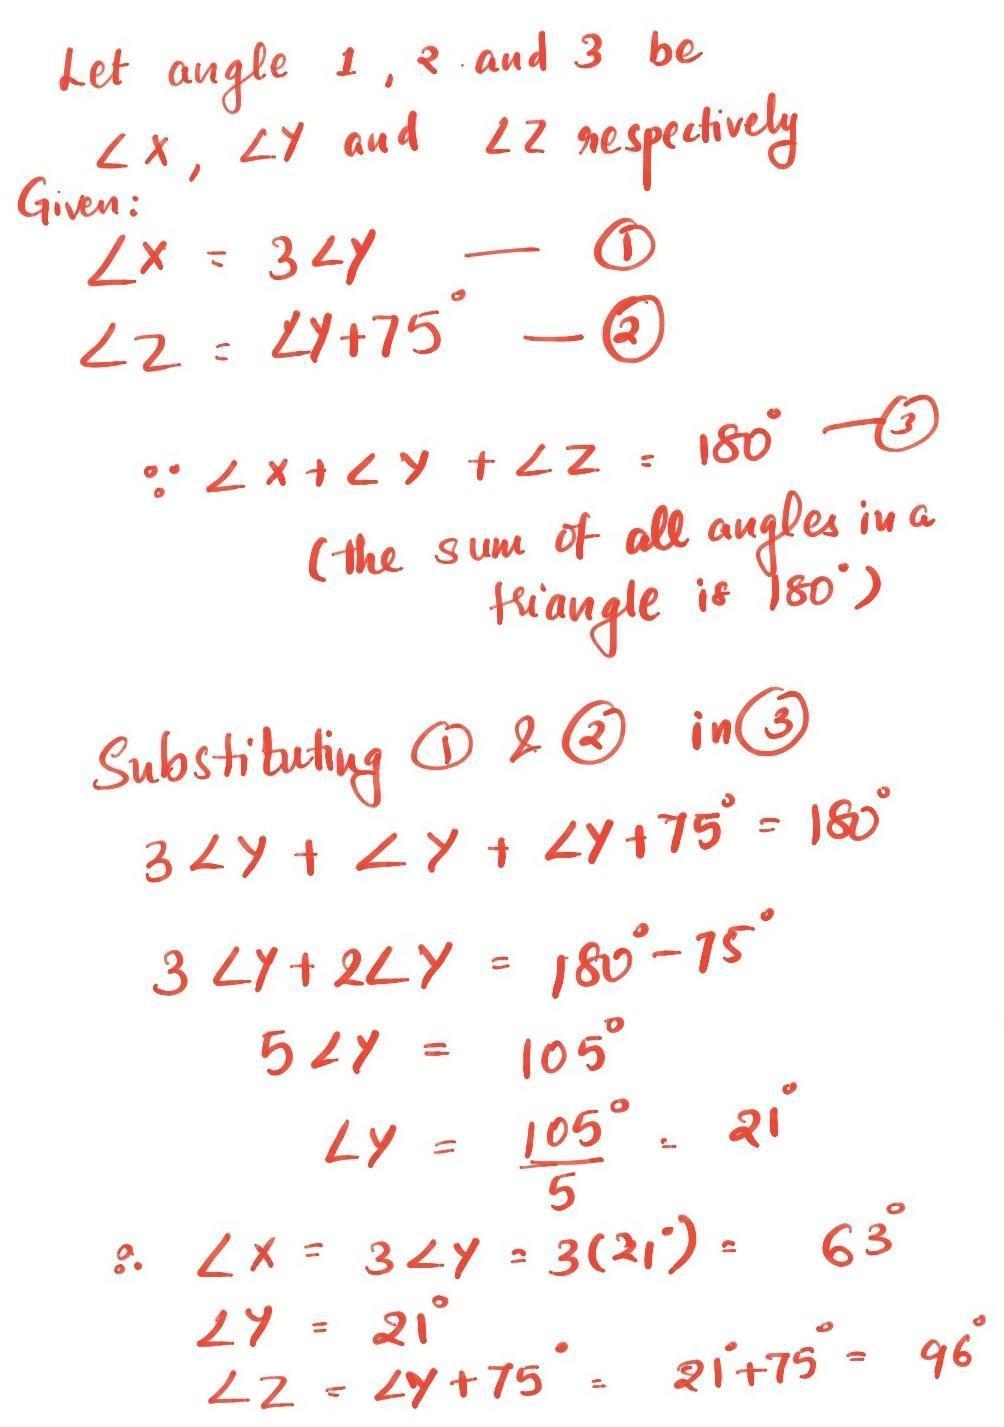 Let angle 1, 2 and 3 be
∠X, ∠Y and ∠Z respectively
Given:
∠X = 3∠Y — ①
∠Z = ∠Y+75° — ②
∵ ∠X+∠Y+∠Z = 180° — ③
(the sum of all angles in a
triangle is 180°)
Substituting ① & ② in ③
3∠Y + ∠Y + ∠Y+75° = 180°
3∠Y+2∠Y = 180°-75°
5∠Y = 105°
∠Y = 105°/5 = 21°
∴ ∠X = 3∠Y = 3(21°) = 63°
∠Y = 21°
∠Z = ∠Y+75° = 21°+75° = 96°